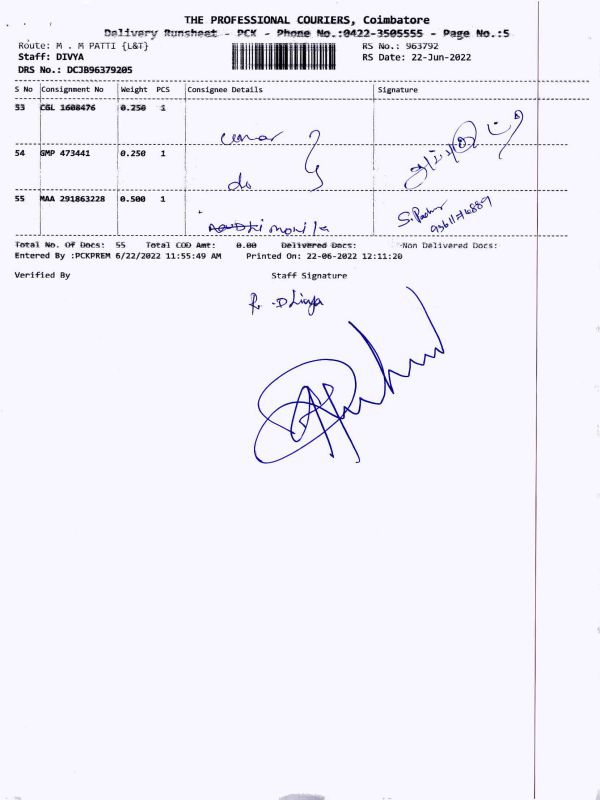 THE PROFESSIONAL COURIERS, Coimbatore
Delivery Runsheet - PCK - Phone No.:0422-3505555 - Page No.:5
Route: M . M PATTI {L&T} RS No.: 963792
Staff: DIVYA RS Date: 22-Jun-2022
DRS No.: DCJB96379205
S No Consignment No Weight PCS Consignee Details Signature
53 CGL 1608476 0.250 1
54 GMP 473441 0.250 1
do
55 MAA 291863228 0.500 1
Total No. Of Docs: 55 Total COD Amt: 0.00 Delivered Docs: Non Delivered Docs:
Entered By :PCKPREM 6/22/2022 11:55:49 AM Printed On: 22-06-2022 12:11:20
Verified By Staff Signature